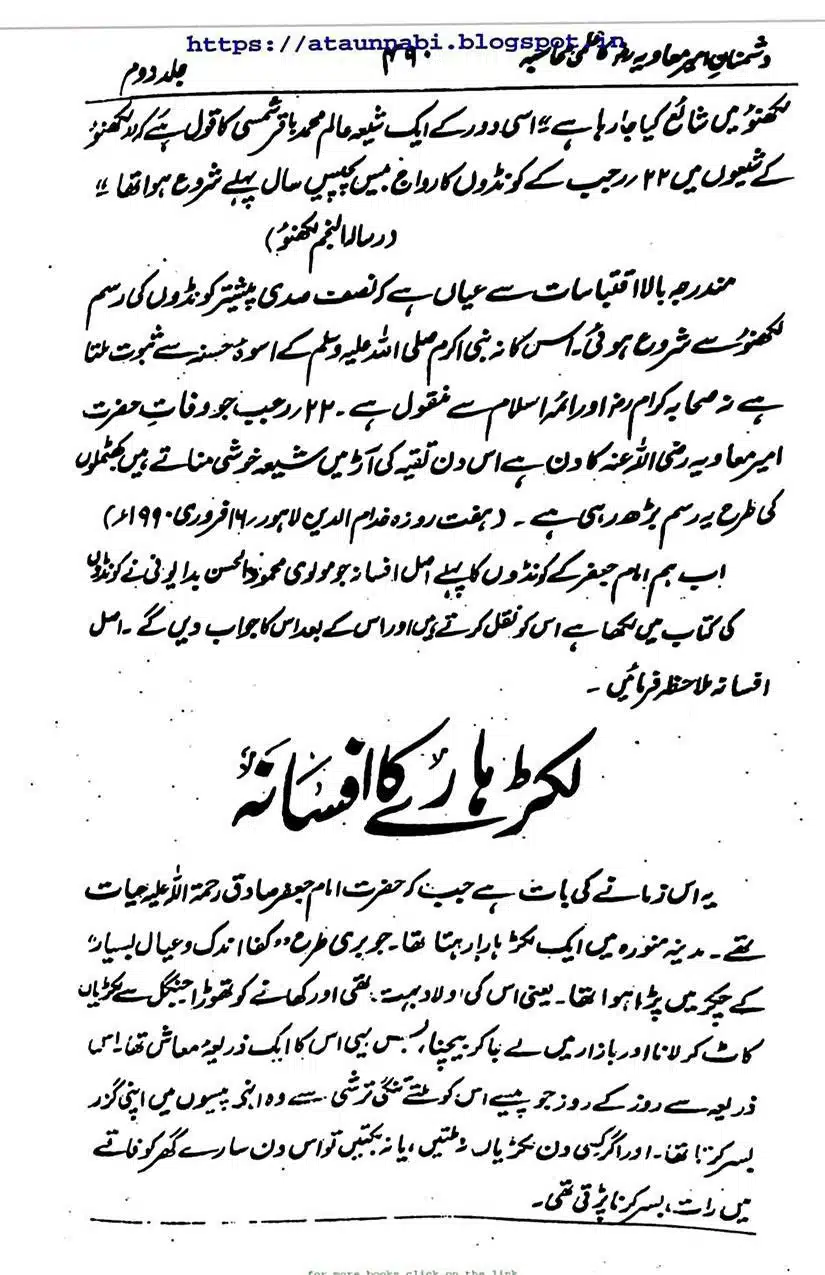 https://ataunnabi.blogspot.in
دشمنانِ امیر معاویہ رضؓ کا علمی محاسبہ ۴۹۰ جلد دوم
لکھنؤ میں شائع کیا جا رہا ہے" اسی دور کے ایک شیعہ عالم محمد باقر شمسی کا قول ہے کہ "لکھنؤ
کے شیعوں میں ۲۲ رجب کے کونڈوں کا رواج بیس پچیس سال پہلے شروع ہوا تھا"
(رسالہ النجم لکھنؤ)
مندرجہ بالا اقتباسات سے عیاں ہے کہ نصف صدی پیشتر کونڈوں کی رسم
لکھنؤ سے شروع ہوئی۔ اس کا نہ نبی اکرم صلی اللہ علیہ وسلم کے اسوۂ حسنہ سے ثبوت ملتا
ہے نہ صحابہ کرام رضؓ اور ائمہ اسلام سے منقول ہے۔ ۲۲ رجب جو وفاتِ حضرت
امیر معاویہ رضی اللہ عنہ کا دن ہے اس دن تقیہ کی آڑ میں شیعہ خوشی مناتے ہیں کھٹملوں
کی طرح یہ رسم بڑھ رہی ہے۔ (ہفت روزہ خدام الدین لاہور ۱۶ فروری ۱۹۹۰ء)
اب ہم امام جعفر کے کونڈوں کا پہلے اصل افسانہ جو مولوی محمود الحسن بدایونی نے کونڈوں
کی کتاب میں لکھا ہے اس کو نقل کرتے ہیں اور اس کے بعد اس کا جواب دیں گے۔ اصل
افسانہ ملاحظہ فرمائیں۔
لکڑ ہارے کا افسانہ
یہ اس زمانے کی بات ہے جب کہ حضرت امام جعفر صادق رحمۃ اللہ علیہ حیات
تھے۔ مدینہ منورہ میں ایک لکڑ ہارا رہتا تھا۔ جو بری طرح "کفا اندک و عیال بسیار"
کے چکر میں پڑا ہوا تھا۔ یعنی اس کی اولاد بہت تھی اور کھانے کو تھوڑا جنگل سے لکڑیاں
کاٹ کر لانا اور بازار میں لے جا کر بیچنا، بس یہی اس کا ایک ذریعۂ معاش تھا۔ اس
ذریعہ سے روز کے روز جو پیسے اس کو ملتے تنگی ترشی سے وہ انہی پیسوں میں اپنی گزر
بسر کرتا تھا۔ اور اگر کسی دن لکڑیاں نہ ملتیں، یا نہ بکتیں تو اس دن سارے گھر کو فاقے
میں رات، بسر کرنا پڑتی تھی۔
for more books click on the link